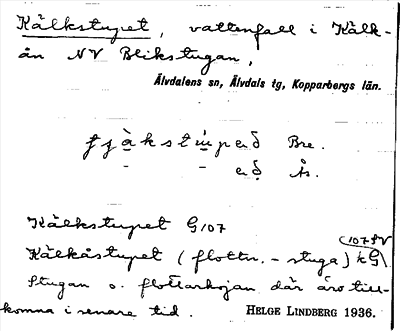 Kälkstupet, vattenfall i Kälk-
ån NV Blikstugan,
Älvdalens sn, Älvdals tg, Kopparbergs län.
Bre.
Ås.
Kälkstupet G107
(107 SV
Kälkåstupet (flottn. - stuga) k G)
Stugan o. flottarkojan där äro till-
komna i senare tid. HELGE LINDBERG 1936.